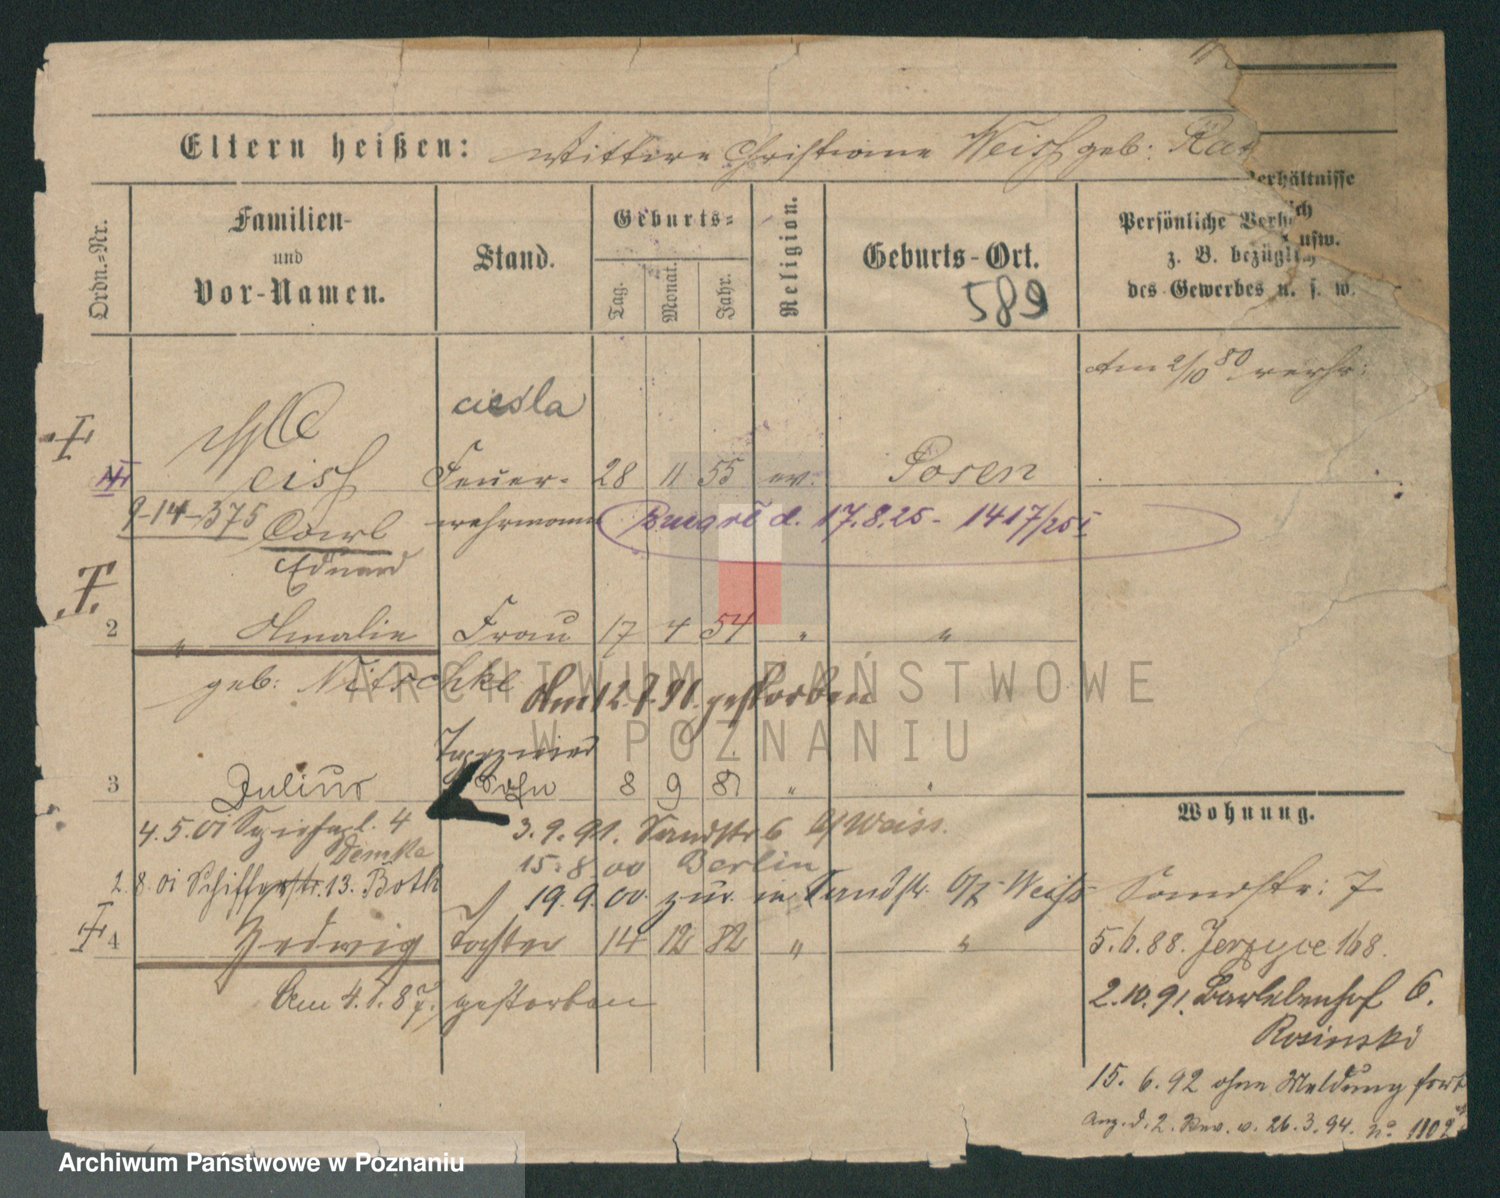 Eltern heißen: Wittwe Christiane Weiss geb:
Ordn.=Nr.
Familien-
und
Vor-Namen.
Stand.
Geburts=
Tag.
Monat.
Jahr.
Religion.
Geburts-Ort.
589
Persönliche Verh
z. B. bezüglich
des Gewerbes u. s. w.
erhältnisse
ich
usw.
Am 2/10 80
ciesla
Weiss Feuer- 28 11 55 ev: Posen
9-14-375 Carl wehrmann d. 17.8.25 - 1417/25
Eduard
2 " Amalie Frau 17 4 54 " "
geb: Nitschke Am 12.7.91. gestorben
3 Julius Sohn 8 9 81 " "
4.5.01 4 3.9.91. Sandstr 6 b/Weiss.
Demke 15.8.00 Berlin
2.8.01 Schifferstr. 13. Both 19.9.00. zur. in Sandstr. 6/7 Weiss
4 Hedwig Tochter 14 12 82 " "
Am 4.1.87. gestorben
Wohnung.
Sandstr: 7
5.6.88. Jerzyce 168.
2.10.91. Bartelsenhof 6.
Rosinski
15.6.92 ohne Meldung fort
Anz. d. 2. Rev. v. 26.3.94. No. 1102
ARCHIWUM PAŃSTWOWE
W POZNANIU
Archiwum Państwowe w Poznaniu